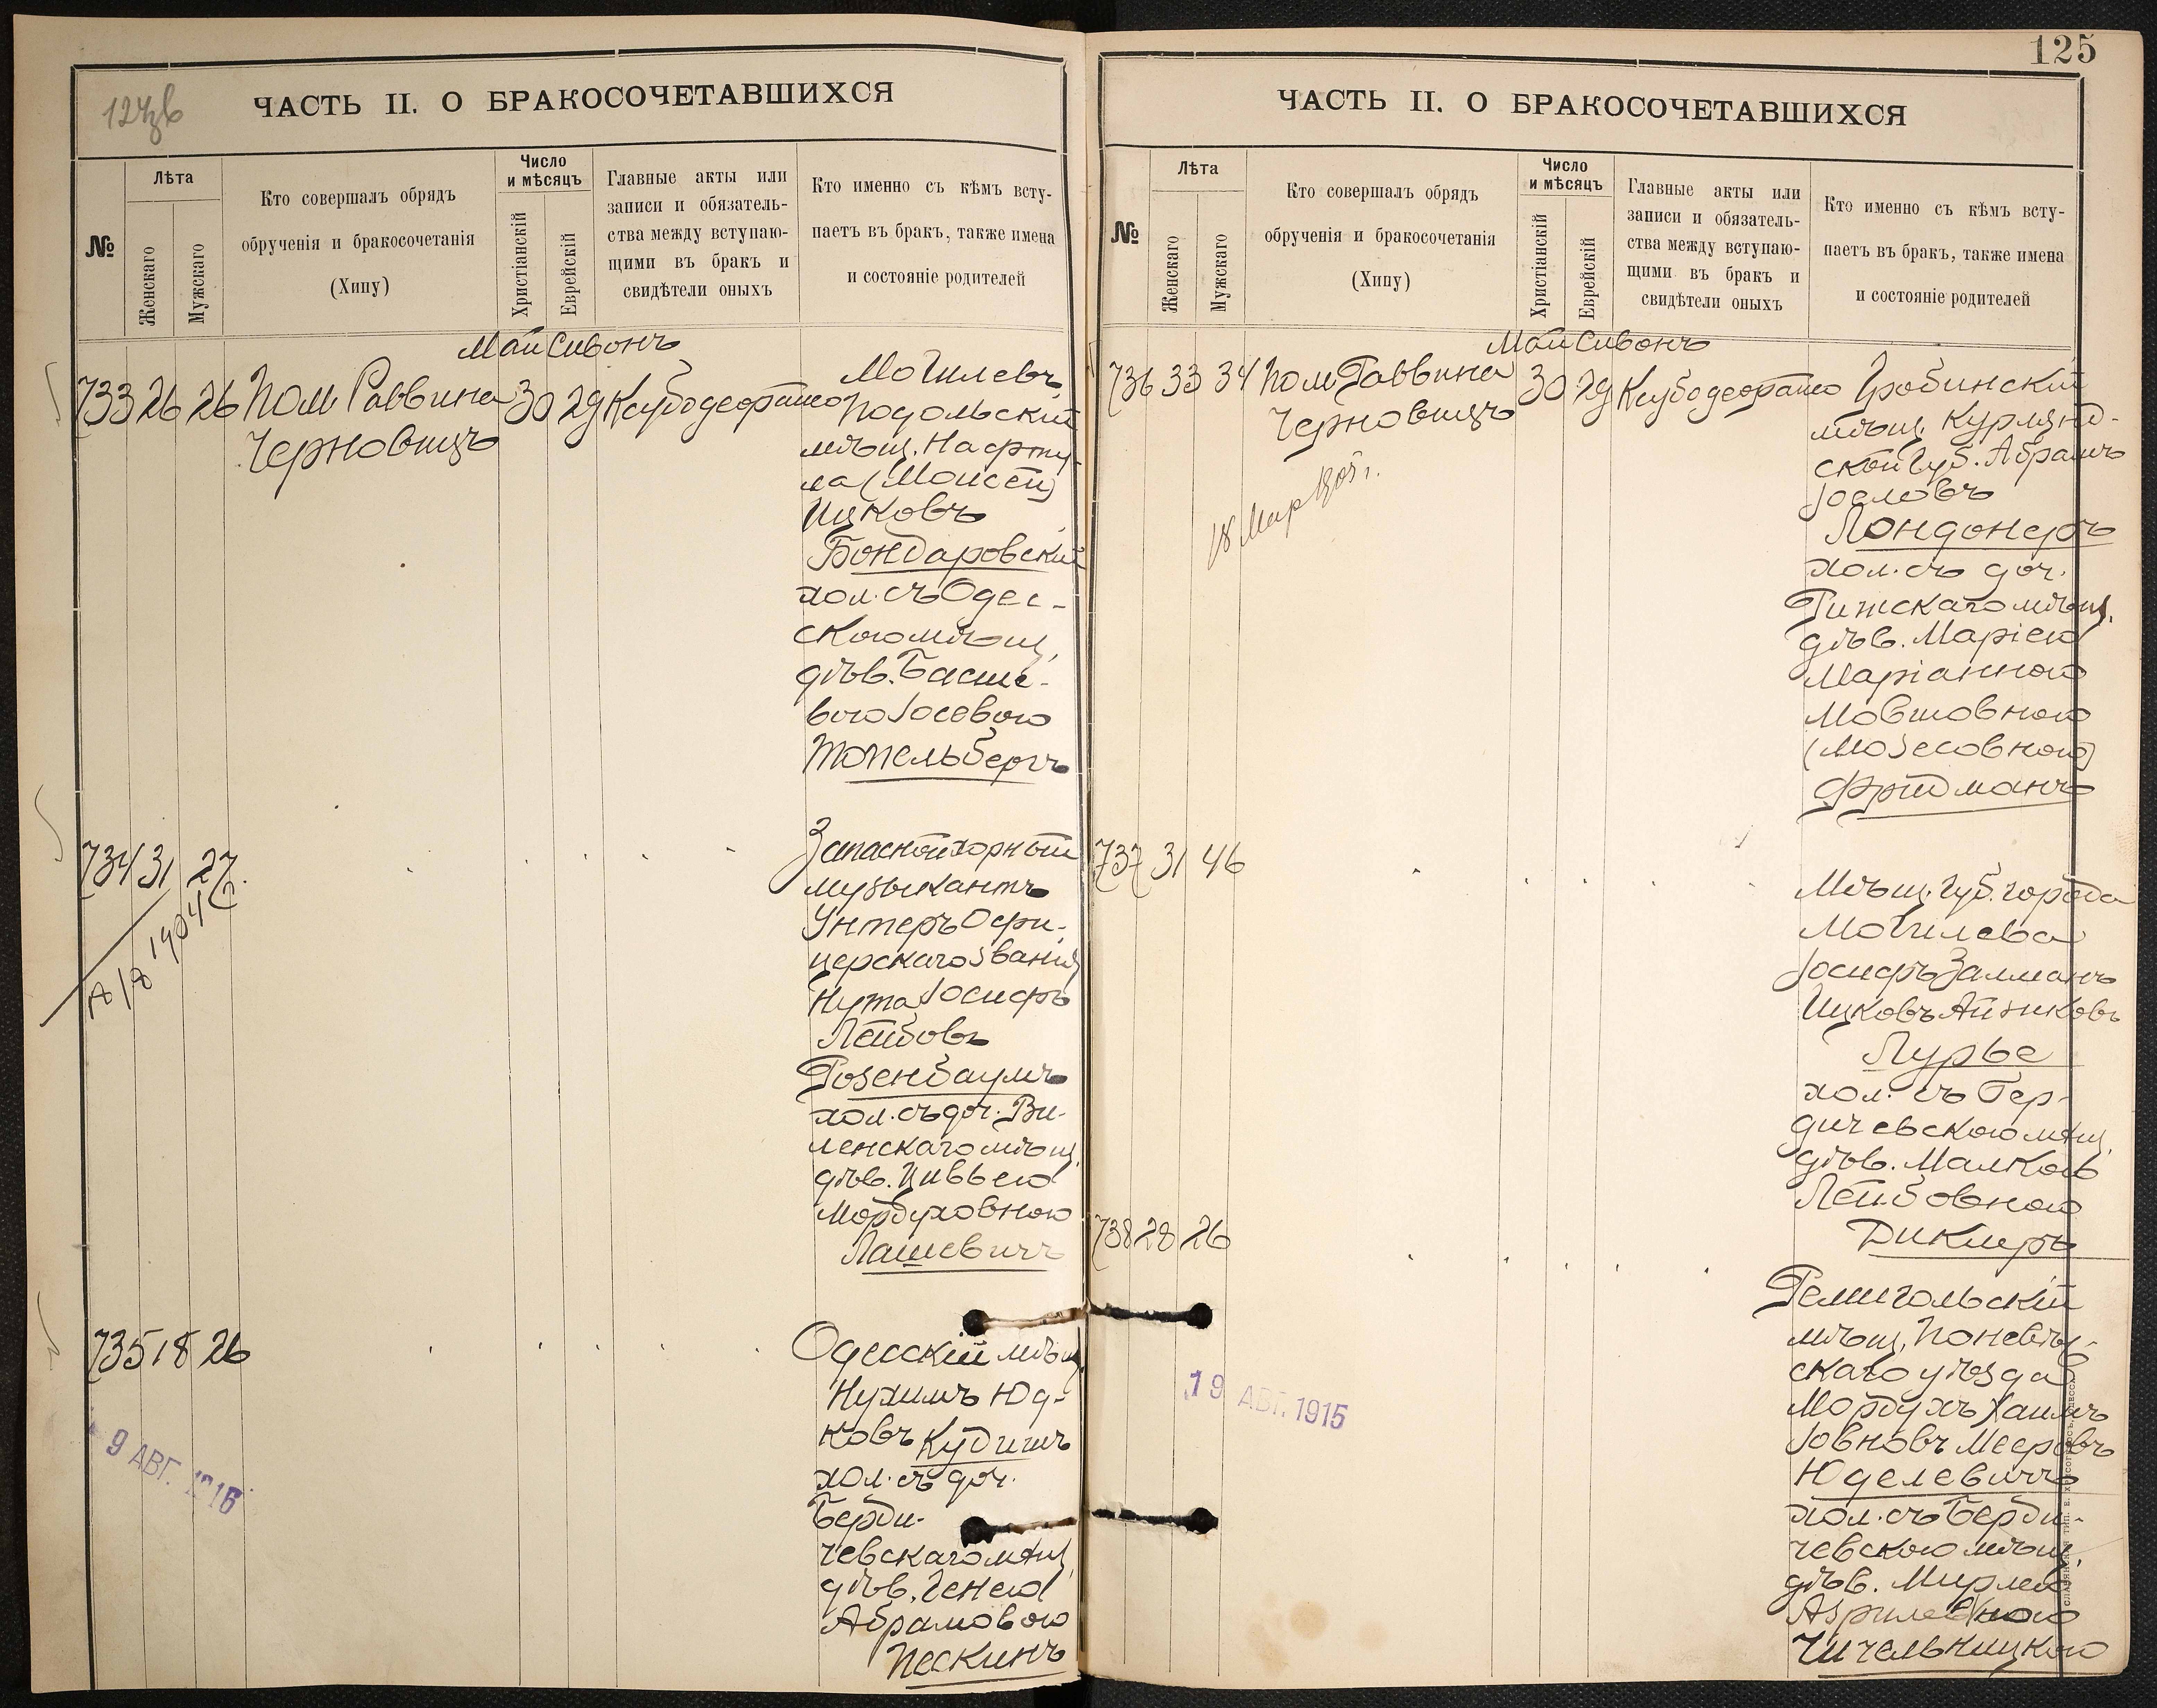 124 об
ЧАСТЬ II. О БРАКОСОЧЕТАВШИХСЯ
№
Лѣта
Женскаго
Мужскаго
Кто совершалъ обрядъ
обрученія и бракосочетанія
(Хипу)
Число
и мѣсяцъ
Христіанскій
Еврейскій
Главные акты или
записи и обязатель-
ства между вступаю-
щими въ бракъ и
свидѣтели оныхъ
Кто именно съ кѣмъ всту-
паетъ въ бракъ, также имена
и состояніе родителей
Май Сивонъ
733 26 26 Пом Раввина 30 29
Черновицъ
Могилевъ
Подольскій
мѣщ. Нафту-
ла (Моисей)
Ицковъ
Бондаровскій
хол. съ Одес-
скою мѣщ.
дѣв. Басше-
вою Іосевою
Топельбергъ
734 31 27
1904 г.
Запасной хорный
музыкантъ
Унтеръ Офи-
церскаго званія
Нута Іосифъ
Лейбовъ
Розенбаумъ
хол. съ доч. Ви-
ленскаго мѣщ.
дѣв. Цивьею
Мордуховною
Лашевичъ
735 18 26
9 АВГ.
Одесскій мѣщ.
Нухимъ Юд-
ковъ Кудишъ
хол. съ доч.
Берди-
чевскаго мѣщ.
дѣв. Генею
Абрамовою
Пескинъ
125
ЧАСТЬ II. О БРАКОСОЧЕТАВШИХСЯ
№
Лѣта
Женскаго
Мужскаго
Кто совершалъ обрядъ
обрученія и бракосочетанія
(Хипу)
Число
и мѣсяцъ
Христіанскій
Еврейскій
Главные акты или
записи и обязатель-
ства между вступаю-
щими въ бракъ и
свидѣтели оныхъ
Кто именно съ кѣмъ всту-
паетъ въ бракъ, также имена
и состояніе родителей
Май Сивонъ
736 33 34 Пом Раввина 30 29
Черновицъ
18 Мар 1905 г.
Гробинскій
мѣщ. Курлянд-
ской Губ. Абрамъ
Іоеловъ
Лондонеръ
хол. съ доч.
Рижскаго мѣщ.
дѣв. Маріею
Маріанною
Мовшовною
(Мозесовною)
Фридманъ
737 31 46
Мѣщ. Губ. города
Могилева
Іосифъ Залманъ
Ицковъ Айзиковъ
Лурье
хол. съ Бер-
дичевскою мѣщ.
дѣв. Малкою
Лейбовною
Дикмеръ
738 28 26
19 АВГ. 1915
Ремигольскій
мѣщ. Поневѣж-
скаго уѣзда
Мордухъ Хаимъ
Іовновъ Мееровъ
Юделевичъ
хол. съ Берди-
чевскою мѣщ.
дѣв. Мирлею
Азрилевною
Чичельницкою